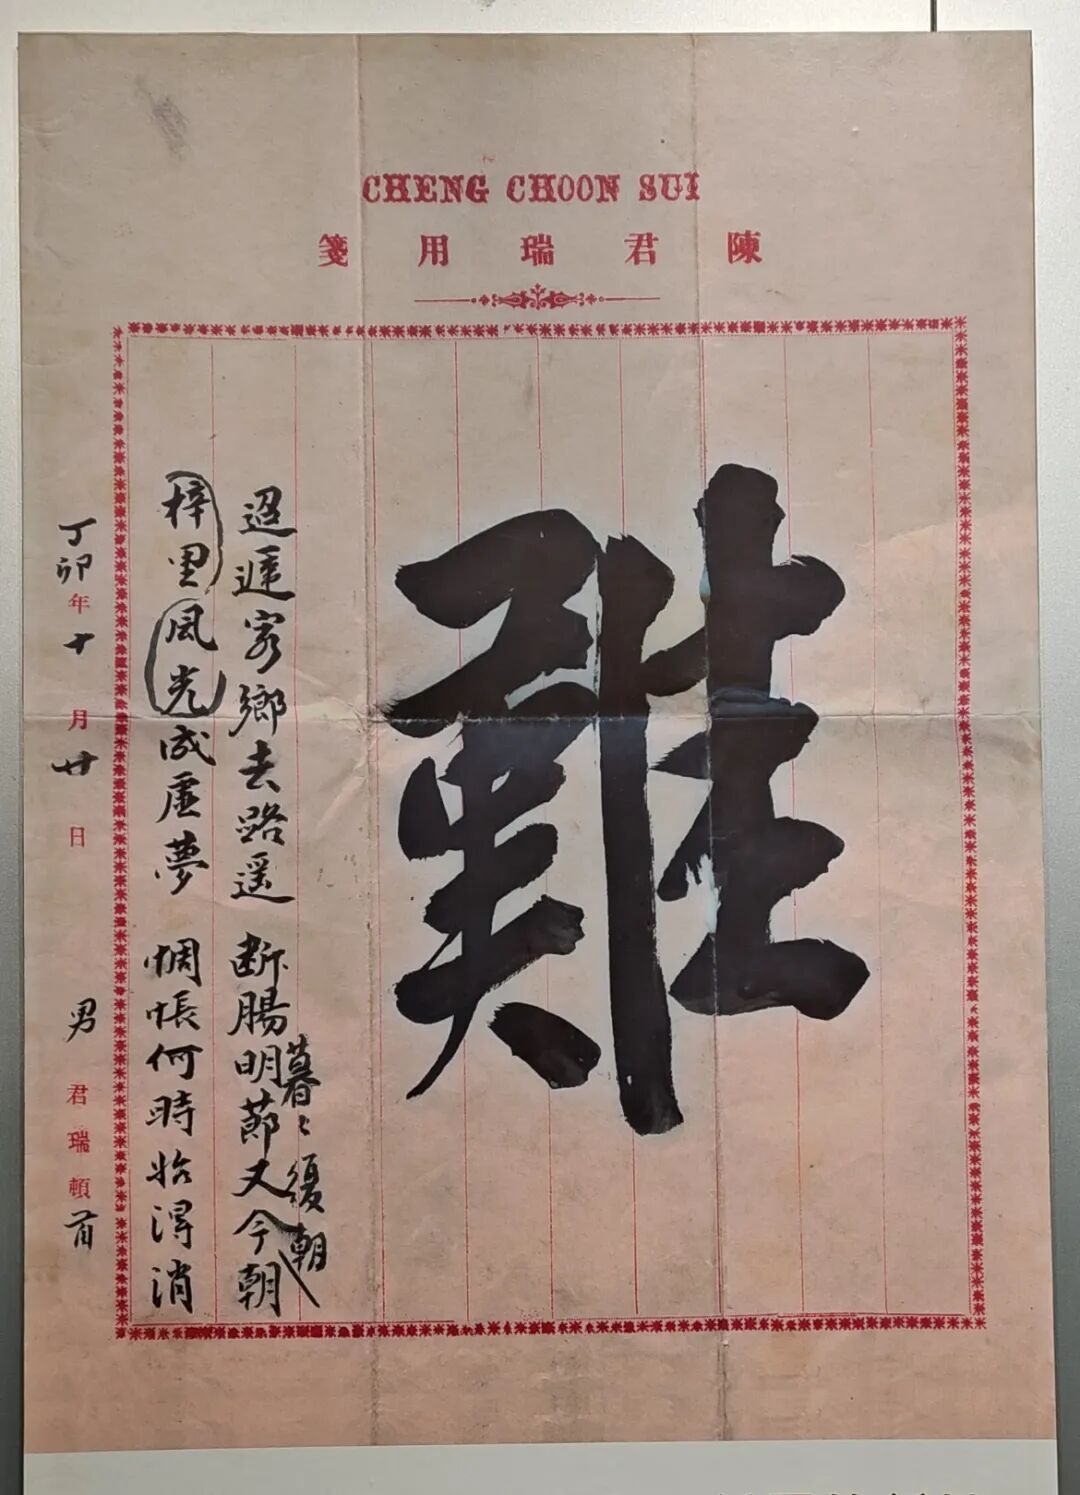 CHENG CHOON SUI
陳君瑞用箋
難
暮〻復朝
迢遞客鄉去路遥 断腸明節又今朝
梓里風光成虛夢 惆悵何時始得消
丁卯年十月廿日 男 君瑞頓首